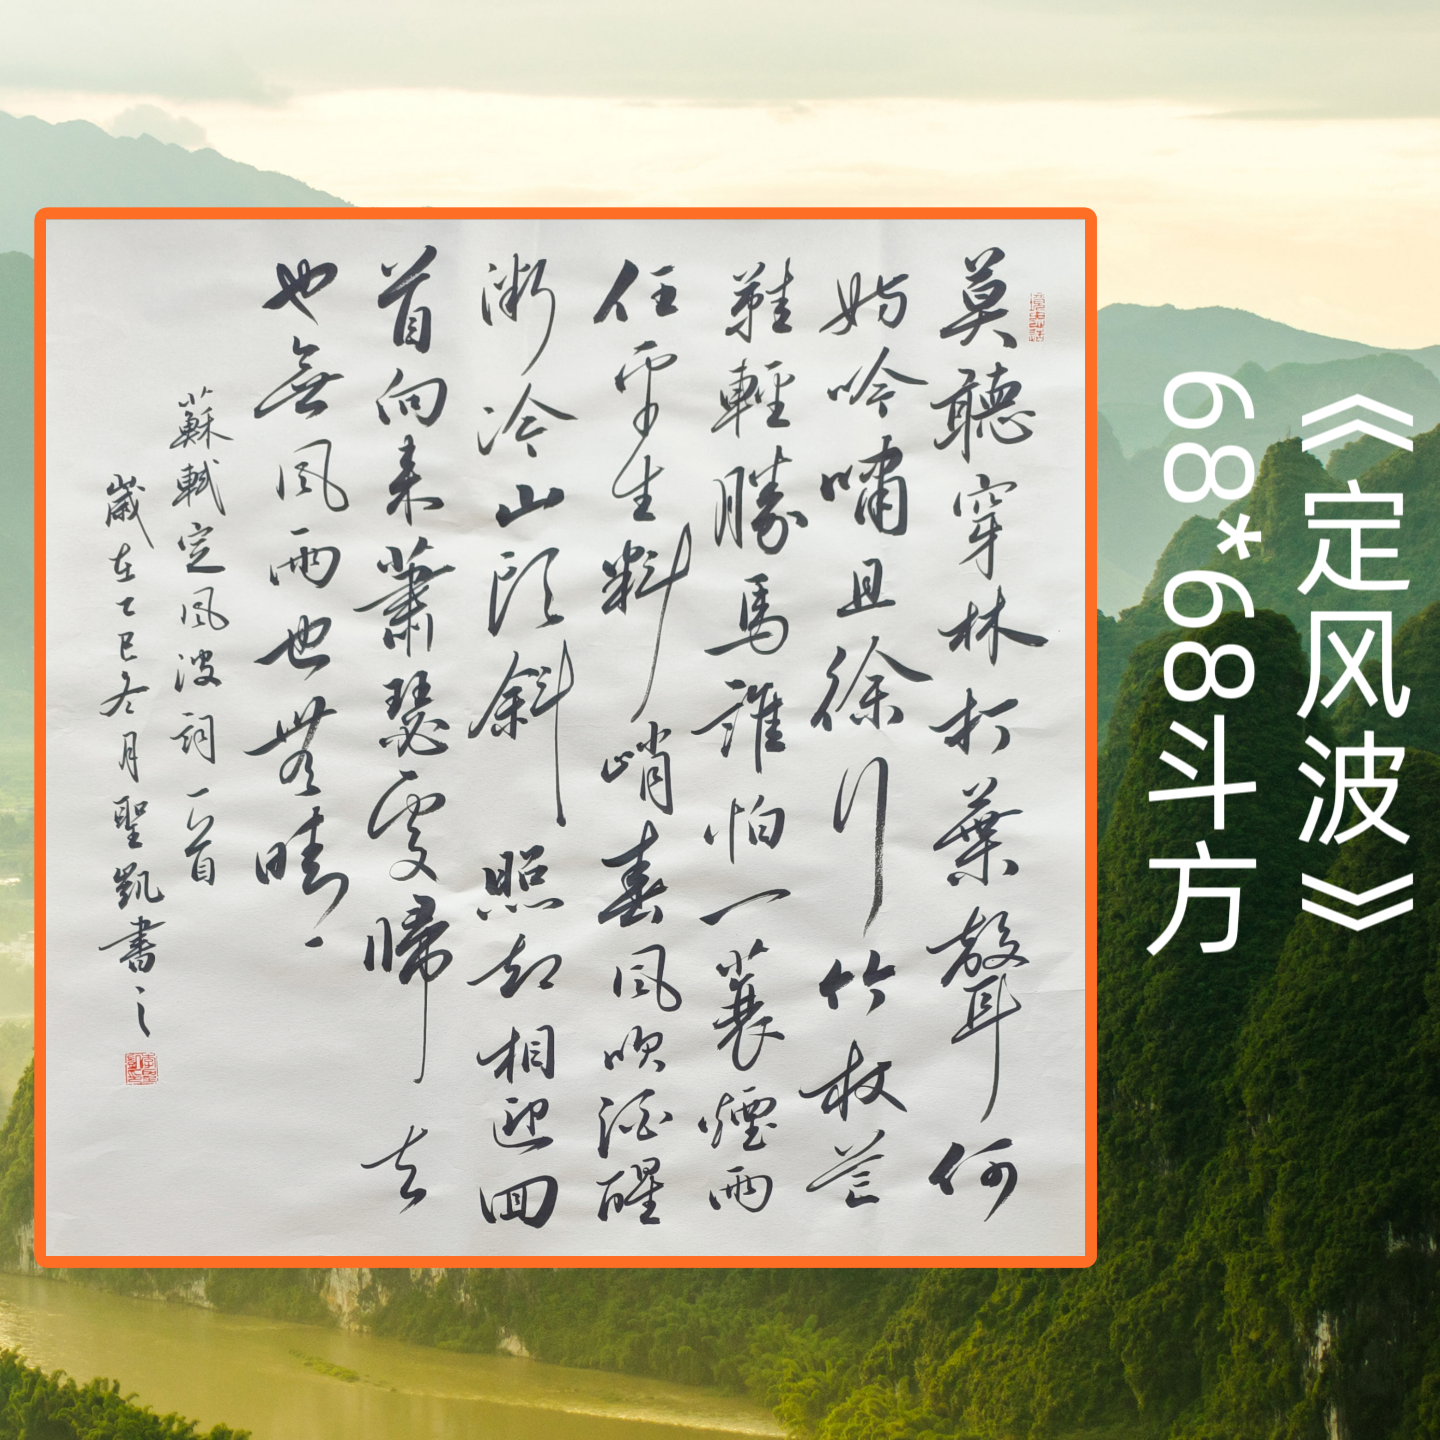 《定风波》
68*68斗方
莫聽穿林打葉聲何
妨吟嘯且徐行竹杖芒
鞋輕勝馬誰怕一蓑煙雨
任平生料峭春風吹酒醒
微冷山頭斜照却相迎回
首向来蕭瑟處歸去
也無風雨也無晴
蘇軾定風波詞一首
歲在乙巳冬月聖凱書之